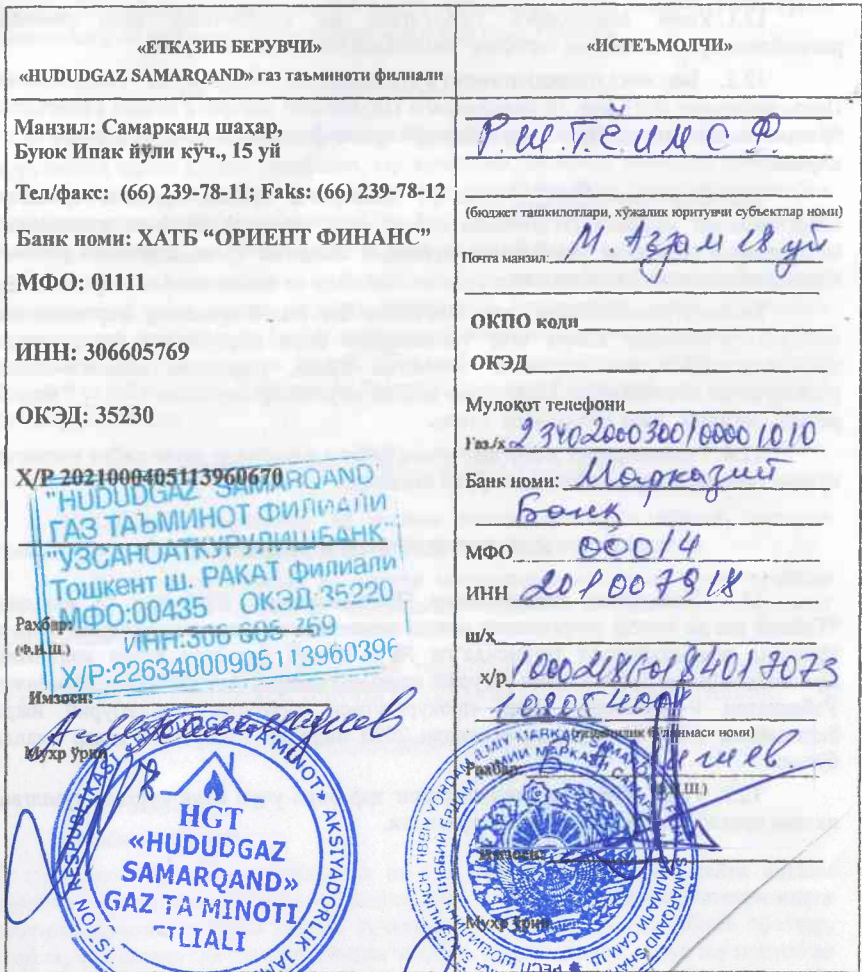 «ЕТКАЗИБ БЕРУВЧИ»
«HUDUDGAZ SAMARQAND» газ таъминоти филиали
Манзил: Самарқанд шаҳар,
Буюк Ипак йўли кўч., 15 уй
Тел/факс: (66) 239-78-11; Faks: (66) 239-78-12
Банк номи: ХАТБ “ОРИЕНТ ФИНАНС”
МФО: 01111
ИНН: 306605769
ОКЭД: 35230
Х/Р 2021000405113960670
"HUDUDGAZ SAMARQAND"
ГАЗ ТАЪМИНОТ ФИЛИАЛИ
"УЗСАНОАТКУРУЛИШБАНК"
Тошкент ш. РАКАТ филиали
МФО:00435 ОКЭД 35220
ИНН:306 605 769
Х/Р:22634000905113960396
Раҳбар:
(Ф.И.Ш.)
Имзоси:
Муҳр ўрни
HGT
«HUDUDGAZ
SAMARQAND»
GAZ TA’MINOTI
FILIALI
«ИСТЕЪМОЛЧИ»
РШ.ТЁИМ С Ф
(бюджет ташкилотлари, хўжалик юритувчи субъектлар номи)
Почта манзил: М. Аъзам 18 уй
ОКПО коди
ОКЭД
Мулоқот телефони
Ғаз./х 23402000300100001010
Банк номи: Марказий
Банк
МФО 00014
ИНН 201007918
ш/х
х/р
Раҳбар:
(Ф.И.Ш.)
Имзоси:
Муҳр ўрни